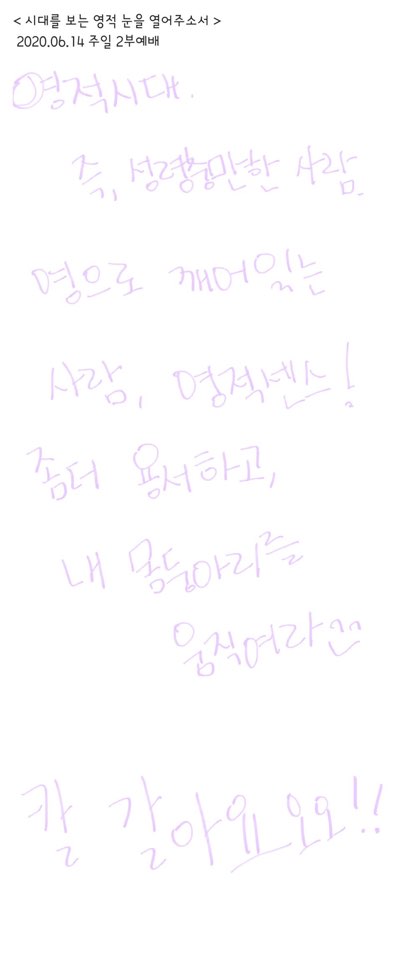 < 시대를 보는 영적 눈을 열어주소서 >
2020.06.14 주일 2부예배
영적시대.
즉, 성령충만한 사람.
영으로 깨어있는
사람, 영적센스!
좀더 용서하고,
내 몸뚱아리를
움직여라
칼 갈아요오오!!